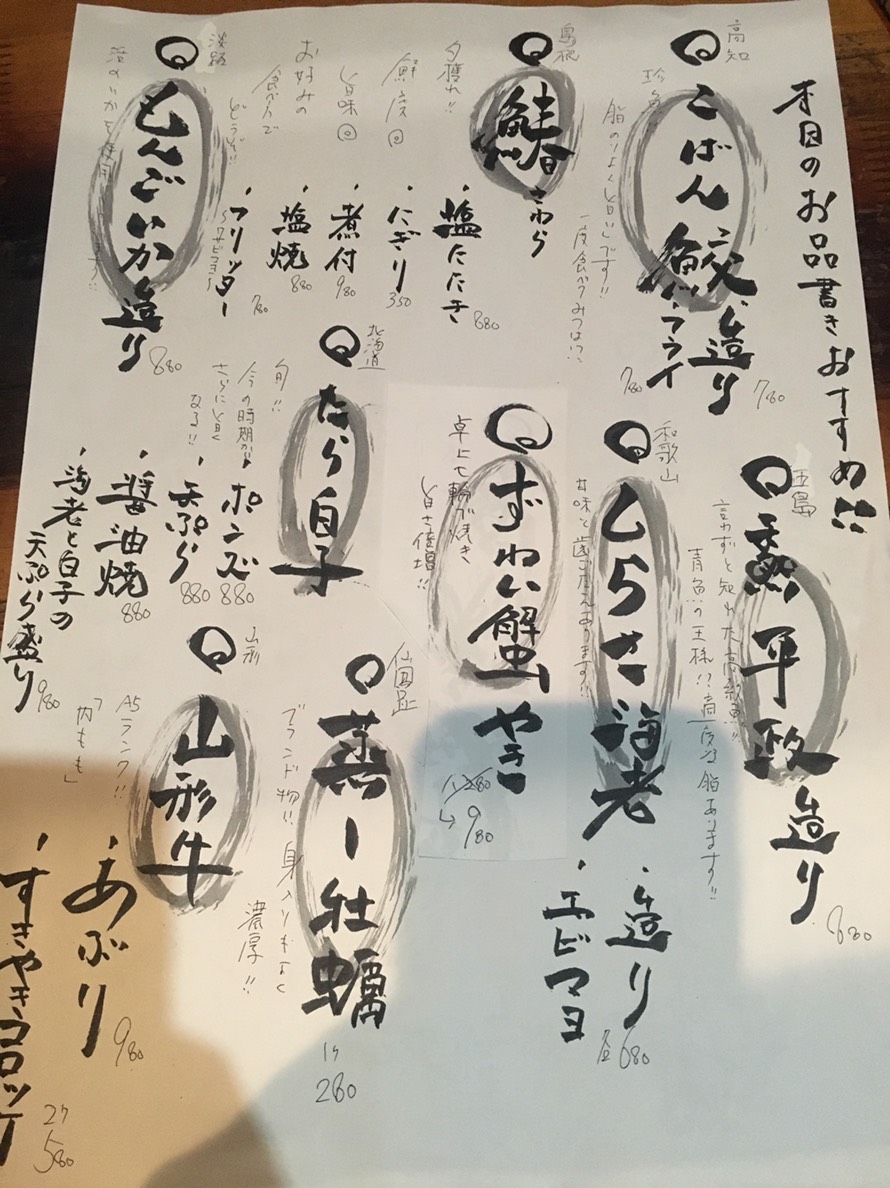 本日のお品書きおすすめ!!
高知
こばん鮫
・造り 780
・フライ 780
珍魚!!
脂のりよく旨いです!!
一度食べてみつは!?
島根
鰆 さわら
夕獲れ!!
鮮度◎
旨味◎
お好みの
食べ方で
どうぞ!!
・塩たたき 880
・にぎり 350
・煮付 980
・塩焼 880
・フリッター 780
淡路
もんごいか造り 880
五島
平政造り 880
言わずと知れた高級魚!!
青魚の王様!!
脂あります!!
和歌山
しらさ海老
甘味と歯ごたえあります!!
・造り
・エビマヨ
各680
ずわい蟹やき
卓上七輪で焼き
旨さ倍増!!
1280
↳980
北海道
たら白子
旬!!
今の時期から
さらに旨く
なる!!
・ポンズ 880
・天ぷら 880
・醤油焼 880
・海老と白子の
天ぷら盛り 980
蒸し牡蠣
ブランド物!! 身入りもよく
濃厚!!
1ケ
280
山形
山形牛
A5ランク!!
「内もも」
・あぶり 980
・すきやきコロッケ
2ケ
580